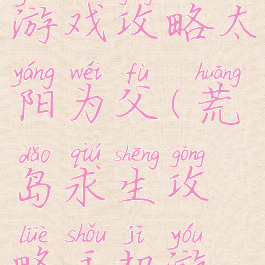 游戏攻略太
yáng wéi fù huāng
阳为父(荒
dǎo qiú shēng gōng
岛求生攻
lüè shǒu jī yóu
略手机游